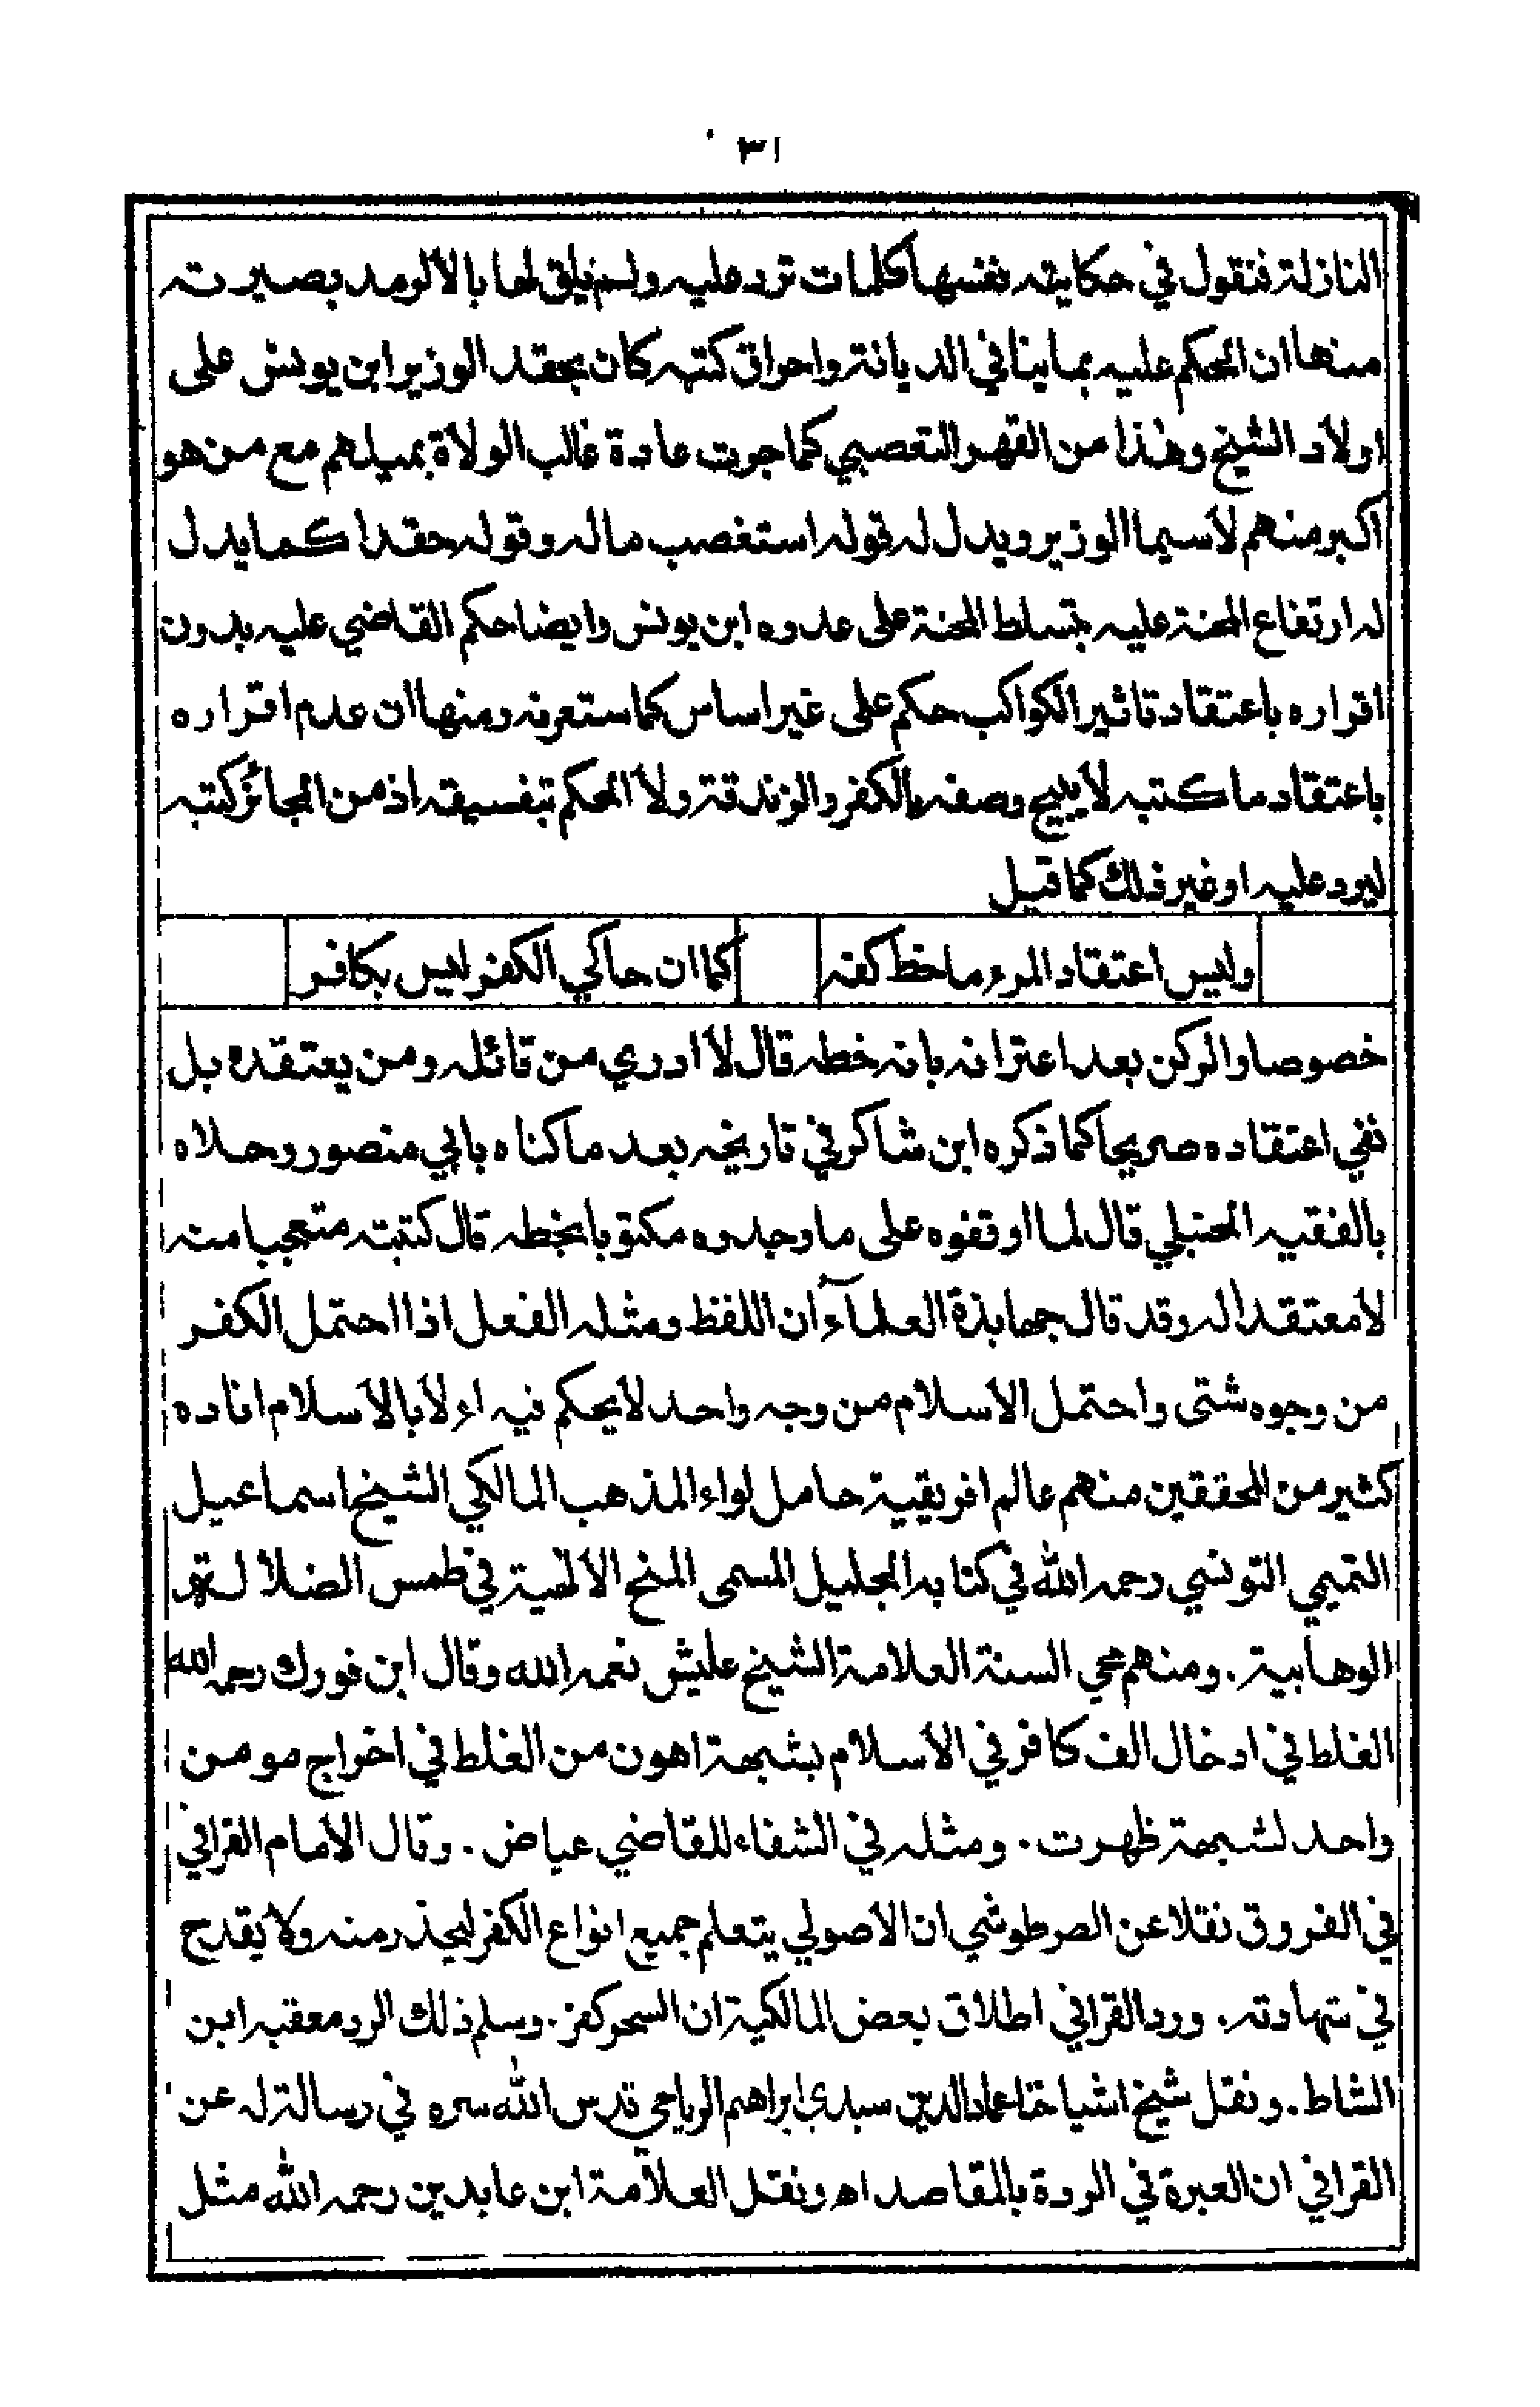 ٣١
النازلة فنقول في حكايته نفسها كلمات ترد عليه ولم يلق لها بالا لرمد بصيرته
منها ان الحكم عليه بما ينافي الديانة واحراق كتبه كان بحقد الوزير ابن يونس على
اولاد الشيخ وهذا من القهر التعصبي كما جرت عادة غالب الولاة بميلهم مع من هو
اكبر منهم لاسيما الوزير ويدل له قوله استغصب ماله وقوله حقدا كما يدل
له ارتفاع المحنة عليه بتسلط المحنة على عدوه ابن يونس وايضا حكم القاضي عليه بدون
اقراره باعتقاد تاثير الكواكب حكم على غير اساس كما ستعرفه ومنها ان عدم اقراره
باعتقاد ما كتبه لا يبيح وصفه بالكفر والزندقة ولا الحكم بتفسيقه اذ من الجائز كتبه
ليرد عليه او غير ذلك كما قيل
وليس اعتقاد المرء ما خط كفه كما ان حاكي الكفر ليس بكافر
خصوصا والركن بعد اعترافه بانه خطه قال لا ادري من قائله ومن يعتقده بل
نفي اعتقاده صريحا كما ذكره ابن شاكر في تاريخه بعد ما كناه بابي منصور وحلاه
بالفقيه الحنبلي قال لما اوقفوه على ما وجدوه مكتوبا بخطه قال كتبته متعجبا منه
لا معتقدا له وقد قال جهابذة العلمآء ان اللفظ ومثله الفعل اذا احتمل الكفر
من وجوه شتى واحتمل الاسلام من وجه واحد لا يحكم فيه اولا بالاسلام افاده
كثير من المحققين منهم عالم افريقية حامل لواء المذهب المالكي الشيخ اسماعيل
التميمي التونسي رحمه الله في كتابه الجليل المسمى المنح الالهية في طمس الضلالة
الوهابية. ومنهم محي السنة العلامة الشيخ عليش نعمه الله وقال ابن فورك رحمه الله
الغلط في ادخال الف كافر في الاسلام بشبهة اهون من الغلط في اخراج مومن
واحد لشبهة ظهرت. ومثله في الشفاء للقاضي عياض. وقال الامام القرافي
في الفروق نقلا عن الطرطوشي ان الاصولي يتعلم جميع انواع الكفر ليحذر منه ولا يقدح
في شهادته. ورد القرافي اطلاق بعض المالكية ان السحر كفر. وسلم ذلك الرد معقبه ابن
الشاط. ونقل شيخ اشياخنا عماد الدين سيدي ابراهم الرياحي قدس الله سره في رسالة له عن
القرافي ان العبرة في الردة بالمقاصد اه ونقل العلامة ابن عابدين رحمه الله مثل